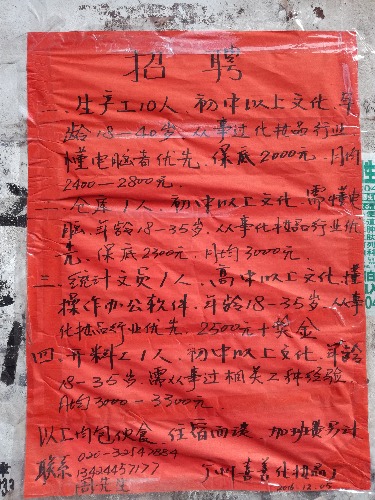 招聘
一.生产工10人.初中以上文化.年
龄18-40岁.从事过化妆品行业
懂电脑者优先.保底2000元.月均
2400-2800元.
二.仓库1人.初中以上文化.需懂电
脑.年龄18-35岁.从事化妆品行业优
先.保底2300元.月均3000元.
三.统计文员1人.高中以上文化.懂
操作办公软件.年龄18-35岁.从事
化妆品行业优先.2500元+奖金
四.开料工1人.初中以上文化.年龄
18-35岁.需从事过相关工种经验
月均3000-3300元.
以上均包伙食.住宿面谈.加班费另计
联系 020-32542884
13424457177
周先生
广州 善化妆品厂
2016.12.05